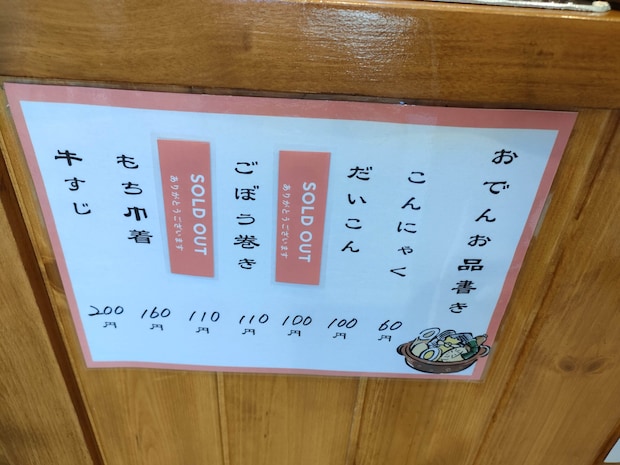 おでんお品書き
こんにゃく
60円
だいこん
100円
SOLD OUT
ありがとうございます
100円
ごぼう巻き
110円
SOLD OUT
ありがとうございます
110円
もち巾着
160円
牛すじ
200円